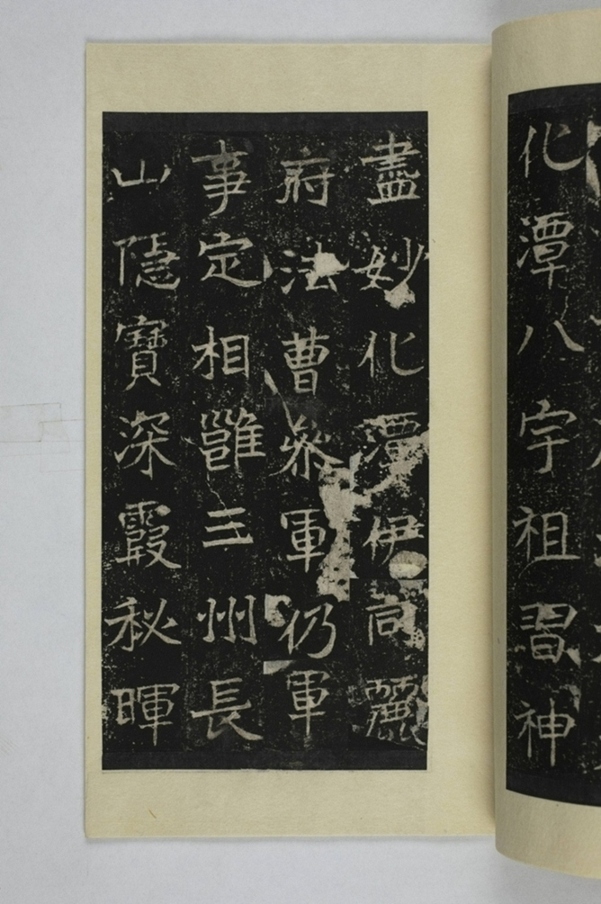 化潭八宇祖習神
盡妙化潭伊何麗
府法曹參軍仍軍
事定相雝三州長
山隱寶深霞秘暉